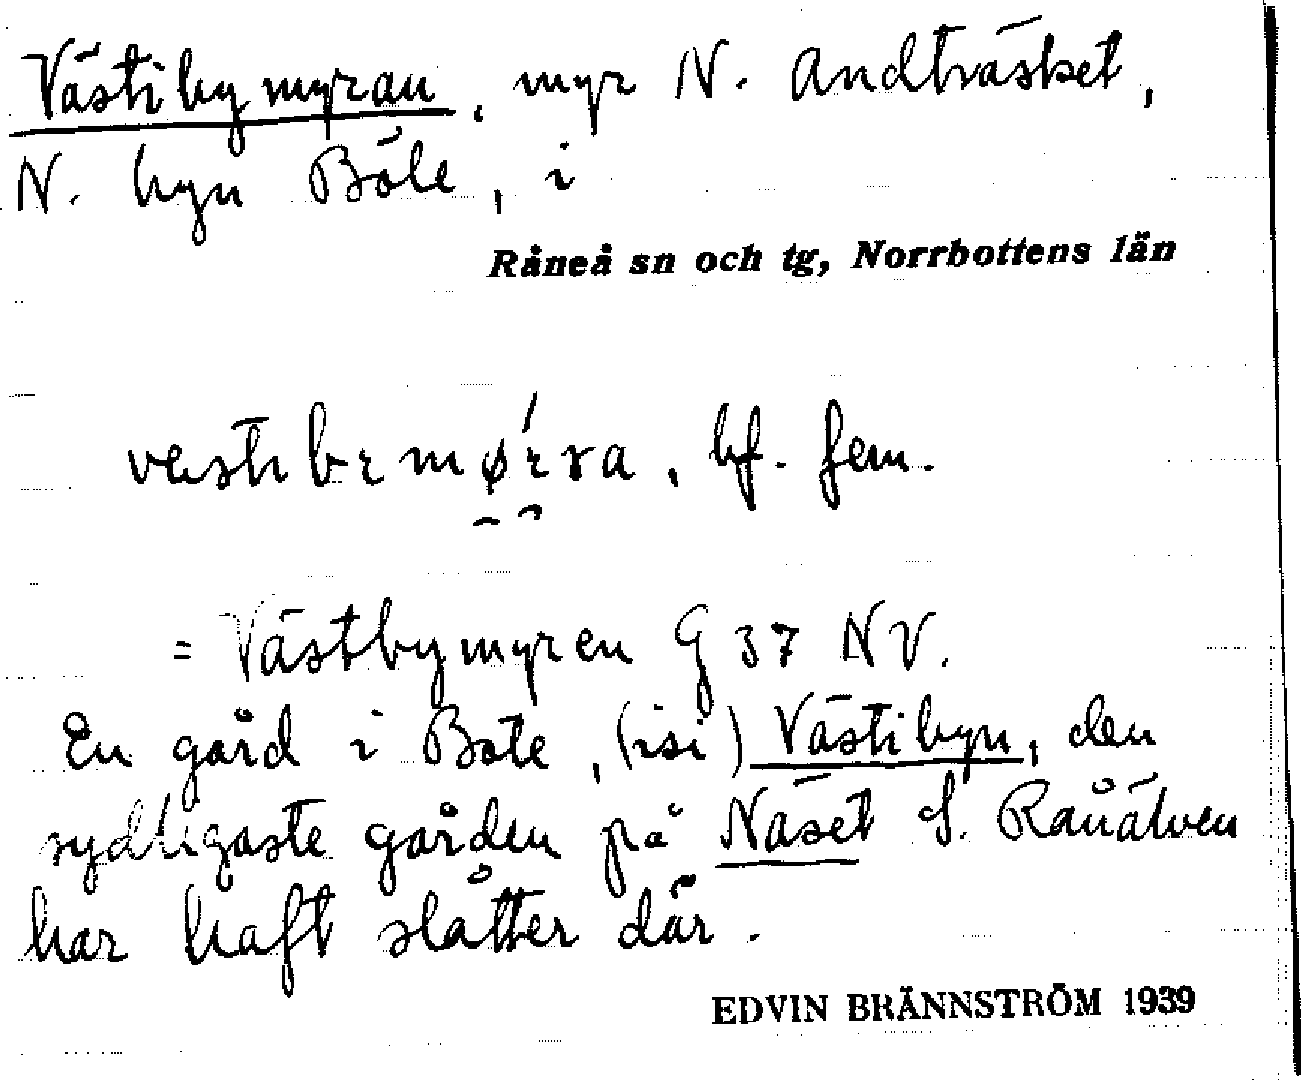 Västibymyran, myr N. Andträsket,
N. byn Böle, i
Råneå sn och tg, Norrbottens län
bf. fem.
= Västbymyren G 37 NV.
En gård i Böle, (isi) Västibyn, den
sydligaste gården på Näset S. Råneälven
har haft slåtter där.
EDVIN BRÄNNSTRÖM 1939